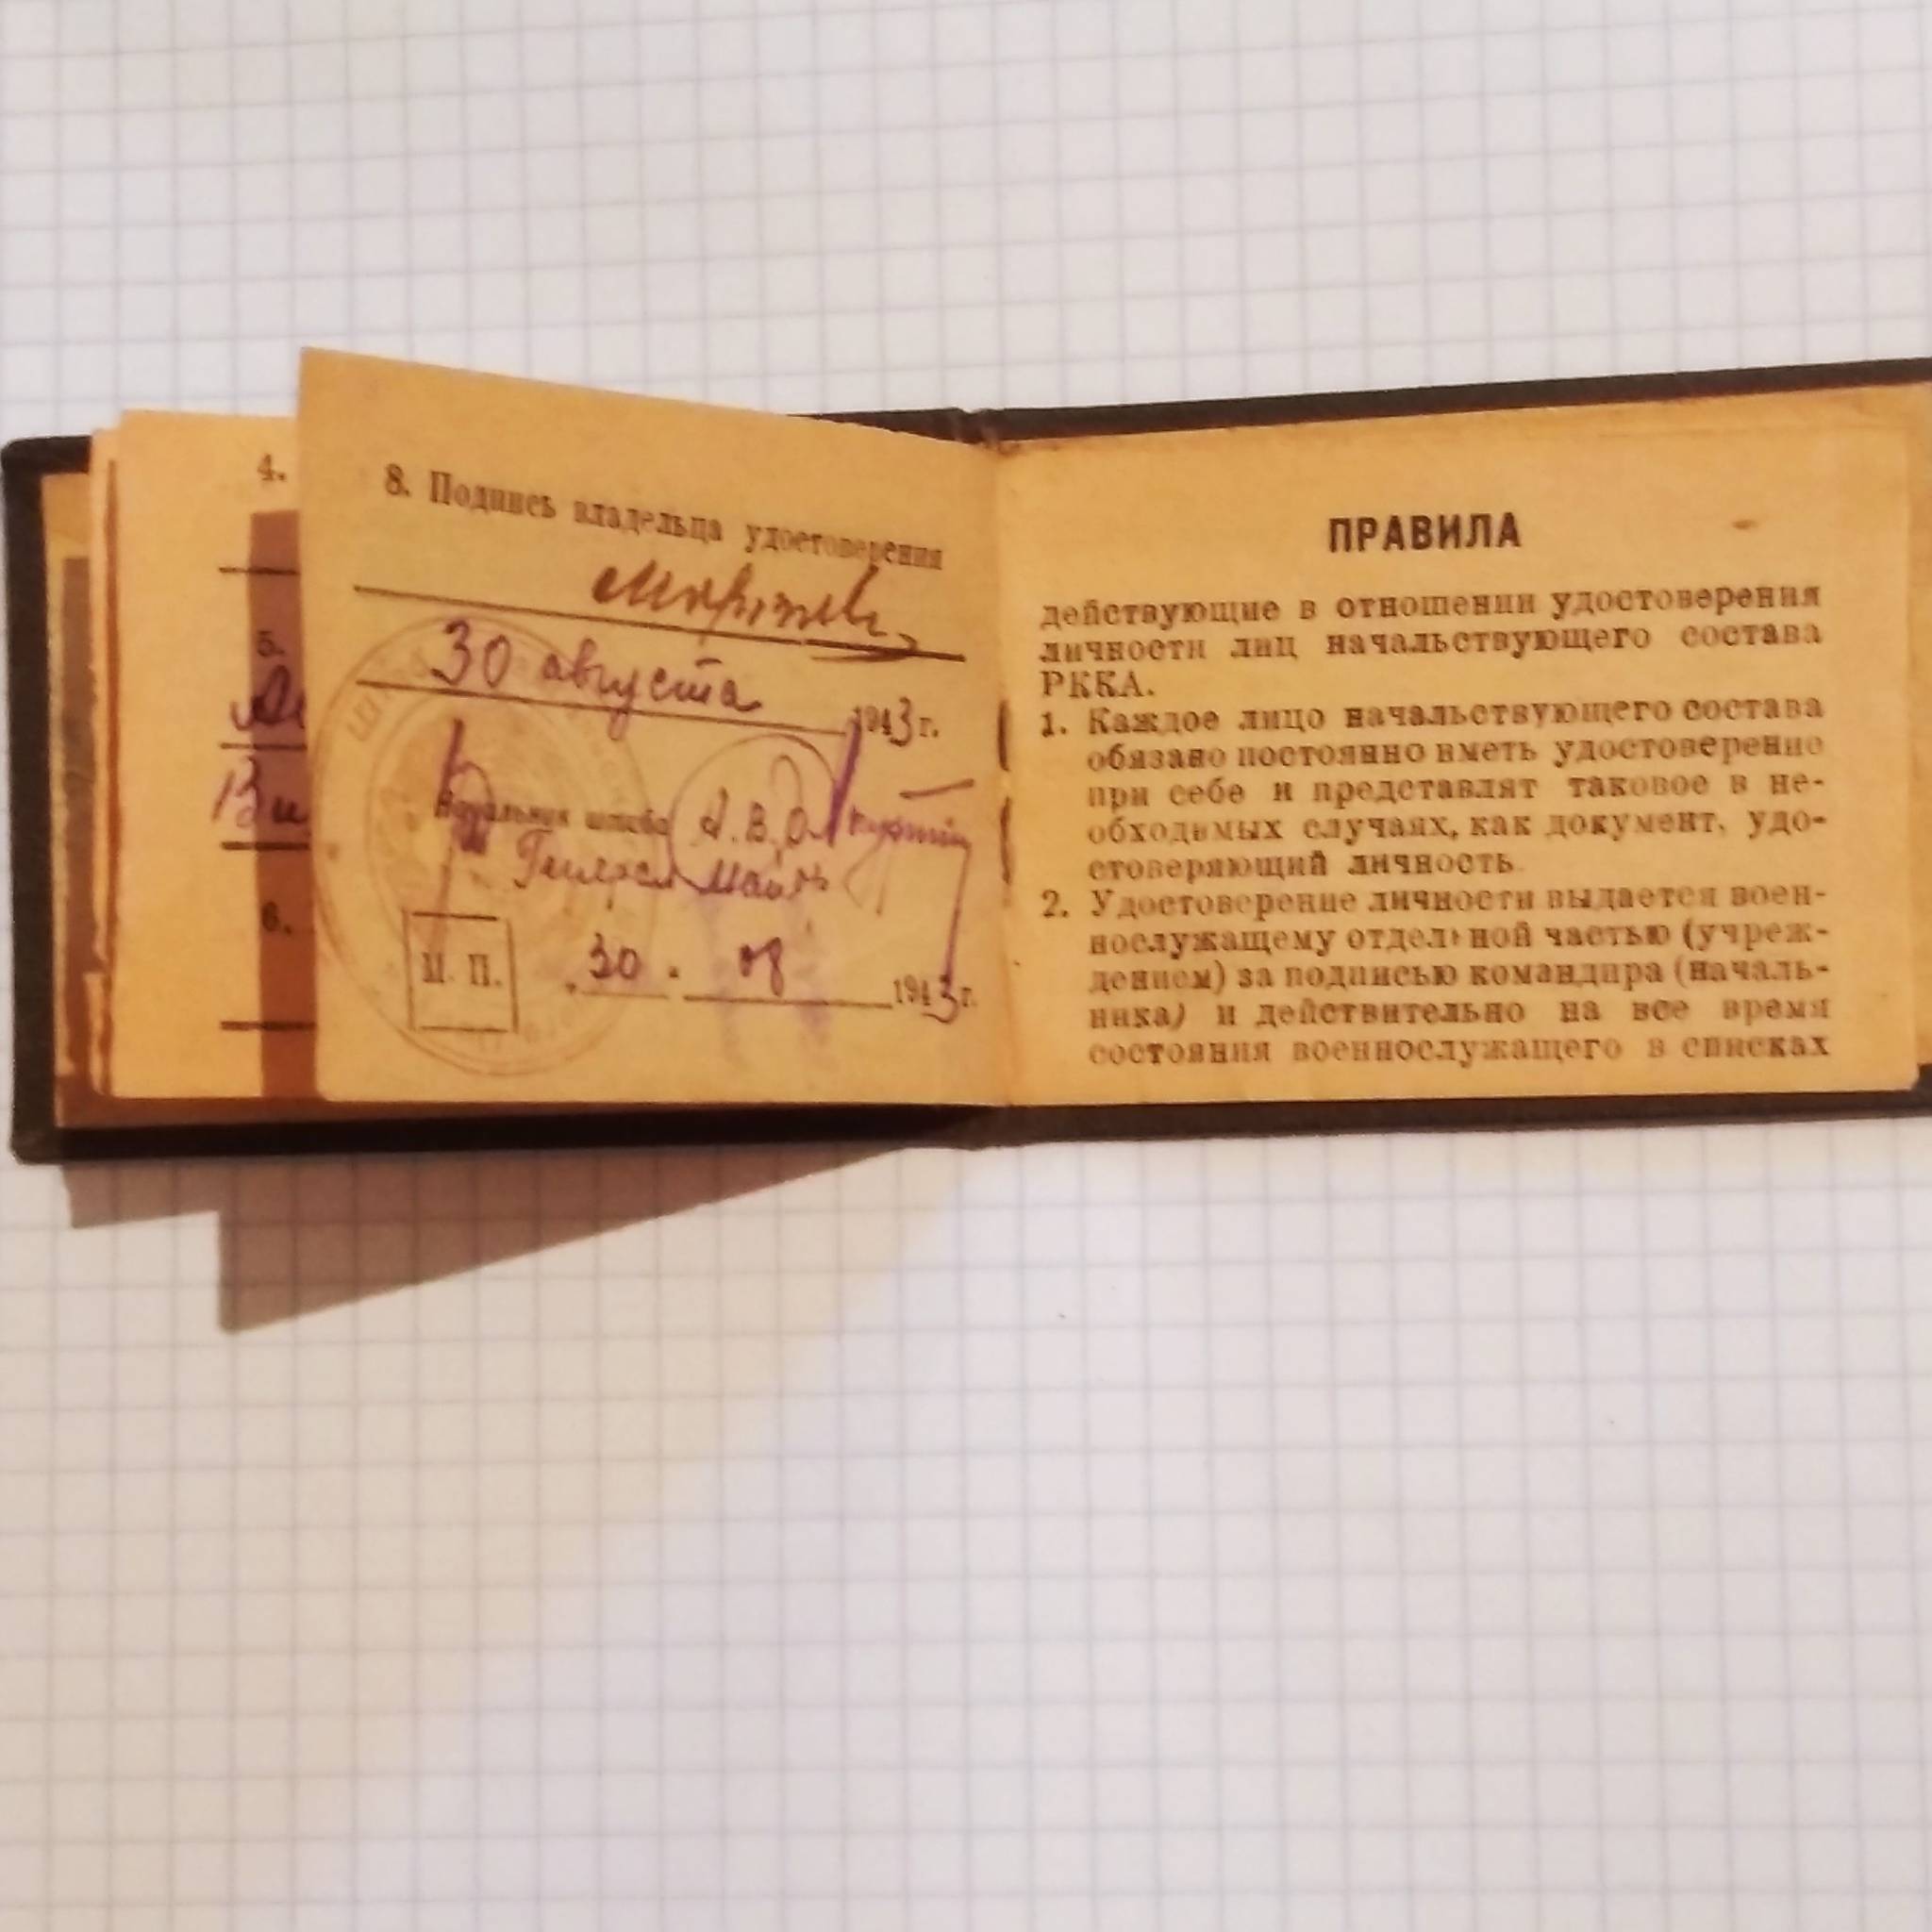 4.
5.
Ви
6.
8. Подпись владельца удостоверения
30 августа
1943 г.
Начальник штаба А.В.О.
Генерал Майор
М. П.
„30 " 08 1943 г.
ПРАВИЛА
действующие в отношении удостоверения
личности лиц начальствующего состава
РККА.
1. Каждое лицо начальствующего состава
обязано постоянно иметь удостоверение
при себе и представлят таковое в не-
обходимых случаях, как документ, удо-
стоверяющий личность.
2. Удостоверение личности выдается воен-
нослужащему отдельной частью (учреж-
дением) за подписью командира (началь-
ника) и действительно на все время
состояния военнослужащего в списках